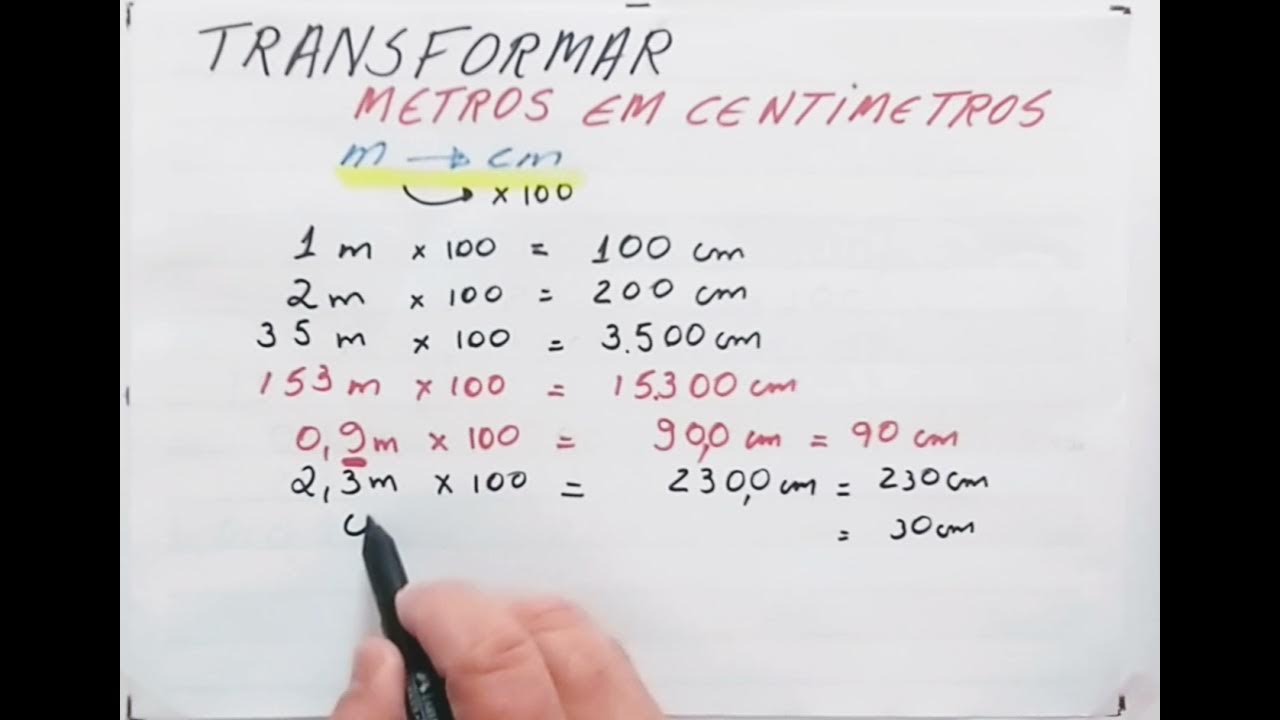 TRANSFORMAR
METROS EM CENTIMETROS
m → cm
× 100
1 m × 100 = 100 cm
2 m × 100 = 200 cm
35 m × 100 = 3.500 cm
153 m × 100 = 15.300 cm
0,9 m × 100 = 90,0 cm = 90 cm
2,3 m × 100 = 230,0 cm = 230 cm
= 30 cm